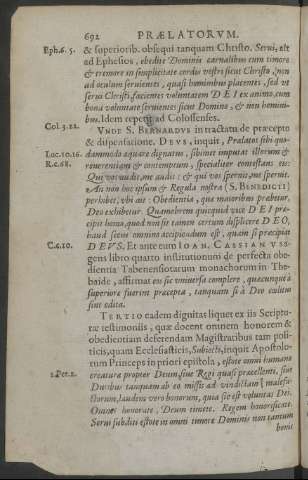 692 PRÆLATORVM.
Eph. 6. 5. & superiorib. obsequi tanquam Christo. Serui, ait
ad Ephesios, obedite Dominis carnalibus cum timore
& tremore in simplicitate cordis vestri sicut Christo, non
ad oculum seruientes, quasi hominibus placentes, sed vt
serui Christi, facientes voluntatem DEI ex animo, cum
bona voluntate seruientes sicut Domino, & non homini-
bus. Idem repetit ad Colossenses.
Col. 3. 22.
VNDE S. BERNARDVS in tractatu de præcepto
& dispensatione, DEVS, inquit, Prælatos sibi quo-
Luc. 10. 16. dammodo æquare dignatus, sibimet imputat illorum &
R. c. 68. reuerentiam & contemptum, specialiter contestans eis:
Qui vos audit, me audit: & qui vos spernit, me spernit.
An non hoc ipsum & Regula nostra (S. BENEDICTI)
perhibet, vbi ait: Obedientia, quæ maioribus præbetur,
Deo exhibetur. Quamobrem quicquid vice DEI præ-
cipit homo, quod non sit tamen certum displicere DEO,
haud secus omnino accipiendum est, quàm si præcipiat
C. 4. 10. DEVS. Et ante eum IOAN. CASSIANVS a-
gens libro quarto institutionum de perfecta obe-
dientia Tabennensiotarum monachorum in The-
baide, affirmat eos sic vniuersa complere, quæcunque à
superiore fuerint præcepta, tanquam si à Deo cælitus
sint edita.
TERTIO eadem dignitas liquet ex iis Scriptu-
ræ testimoniis, quæ docent omnem honorem &
obedientiam deferendam Magistratibus tam poli-
ticis, quam Ecclesiasticis, Subiecti, inquit Apostolo-
rum Princeps in priori epistola, estote omni humanæ
1. Pet. 2. creaturæ propter Deum, siue Regi quasi præcellenti, siue
Ducibus tanquam ab eo missis ad vindictam malefa-
ctorum, laudem vero bonorum, quia sic est voluntas Dei.
Omnes honorate, Deum timete. Regem honorificate.
Serui subditi estote in omni timore Dominis non tantum
bonis